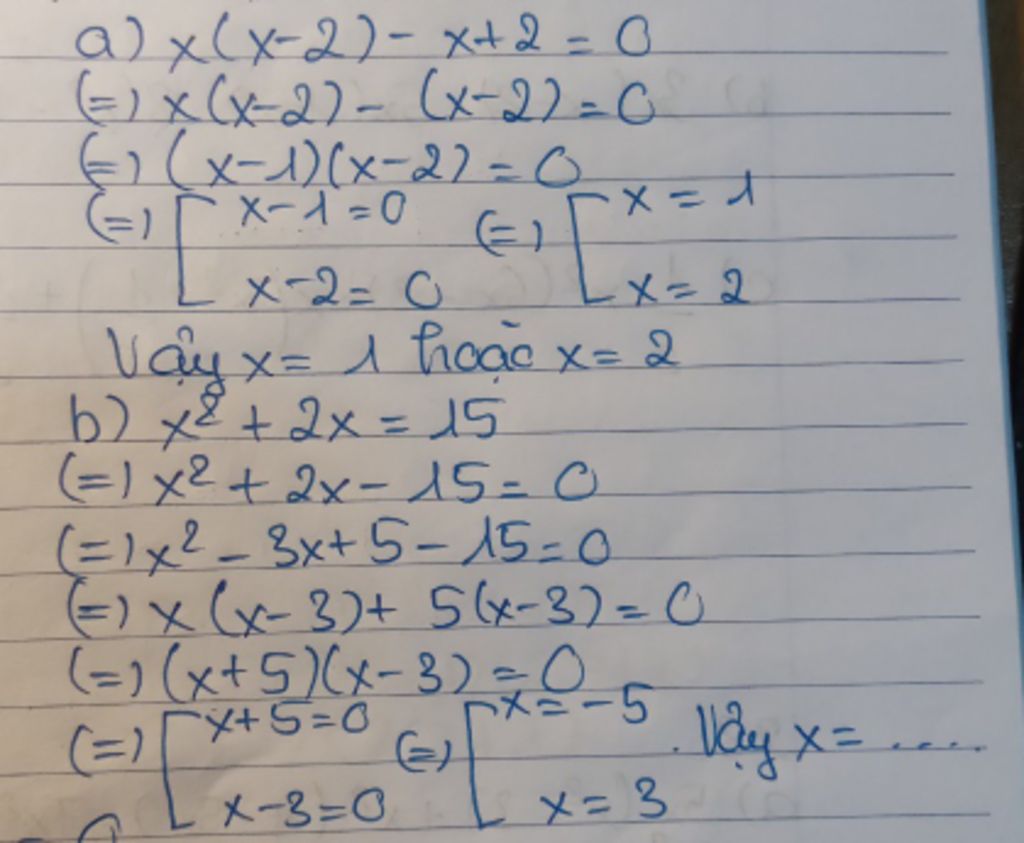 a) x(x-2) - x+2 = 0
(=) x(x-2) - (x-2) = 0
(=) (x-1)(x-2) = 0
(=) [ x-1 = 0 (=) [ x = 1
x-2 = 0 x = 2
Vậy x = 1 hoặc x = 2
b) x² + 2x = 15
(=) x² + 2x - 15 = 0
(=) x² - 3x + 5 - 15 = 0
(=) x (x-3) + 5(x-3) = 0
(=) (x+5)(x-3) = 0
(=) [ x+5 = 0 (=) [ x = -5 . Vậy x = ....
x-3 = 0 x = 3